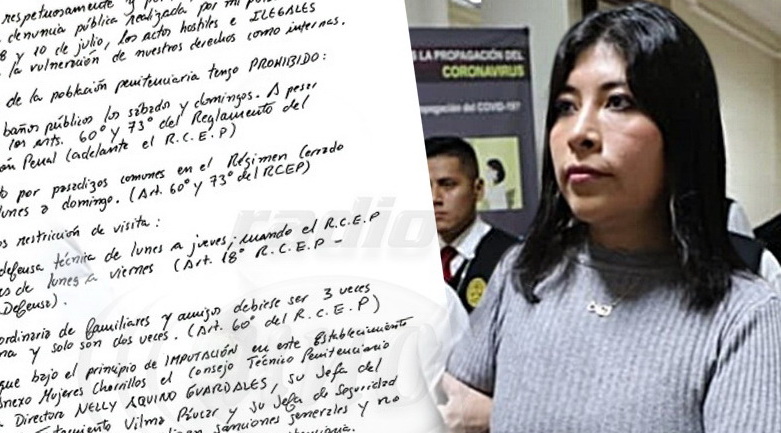 respetuosamente y
denuncia pública realizada por mi
8 y 10 de julio, los actos hostiles e ILEGALES
la vulneración de nuestros derechos como internas.
de la población penitenciaria tengo PROHIBIDO:
baños públicos los sábados y domingos. A pesar
los arts. 60° y 73° del Reglamento del
ón Penal (adelante el R.C.E.P)
to por pasadizos comunes en el Régimen Cerrado
lunes a domingo. (Art. 60° y 73° del RCEP)
os restricción de visita:
defensa técnica de lunes a jueves; cuando el R.C.E.P
es de lunes a viernes (Art. 18° R.C.E.P -
Defensa).
ordinario de familiares y amigos debiese ser 3 veces
na y solo son dos veces. (Art. 60° del R.C.E.P)
que bajo el principio de IMPUTACIÓN en este Establecimiento
Anexo Mujeres Chorrillos el Consejo Técnico Penitenciario
Directora NELLY AQUINO GUARDALES, su Jefa del
tamiento Vilma Páucar y su Jefa de Seguridad
sanciones generales y no
S LA PROPAGACIÓN DEL
CORONAVIRUS
opagación del COVID-19?
radio